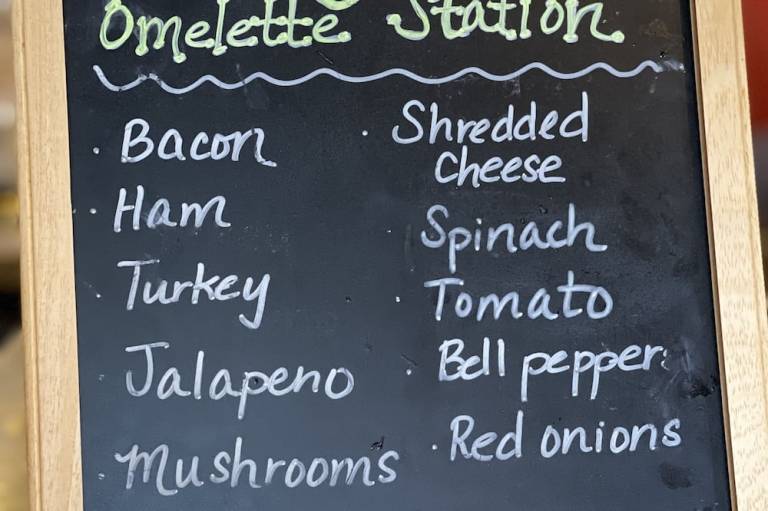 Omelette Station
· Bacon
· Ham
· Turkey
Jalapeno
· Mushrooms
· Shredded
Cheese
Spinach
· Tomato
· Bell pepper
· Red onions